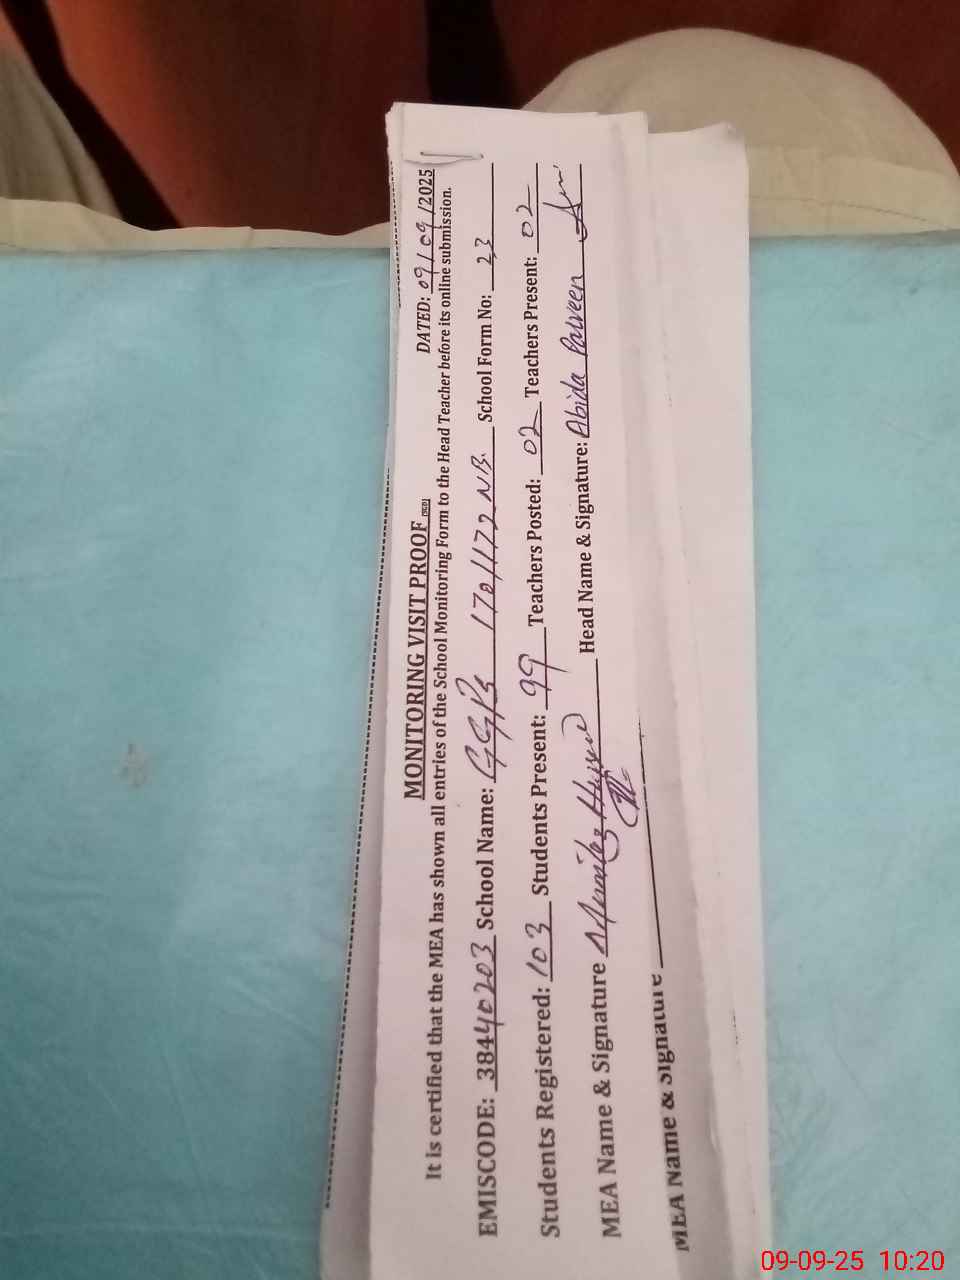 MONITORING VISIT PROOF (SED) DATED: 09/09/2025
It is certified that the MEA has shown all entries of the School Monitoring Form to the Head Teacher before its online submission.
EMISCODE: 38440203 School Name: GGPS 170/172 NB. School Form No: 23
Students Registered: 103 Students Present: 99 Teachers Posted: 02 Teachers Present: 02
MEA Name & Signature Head Name & Signature: Abida Parveen
MEA Name & Signature
09-09-25 10:20